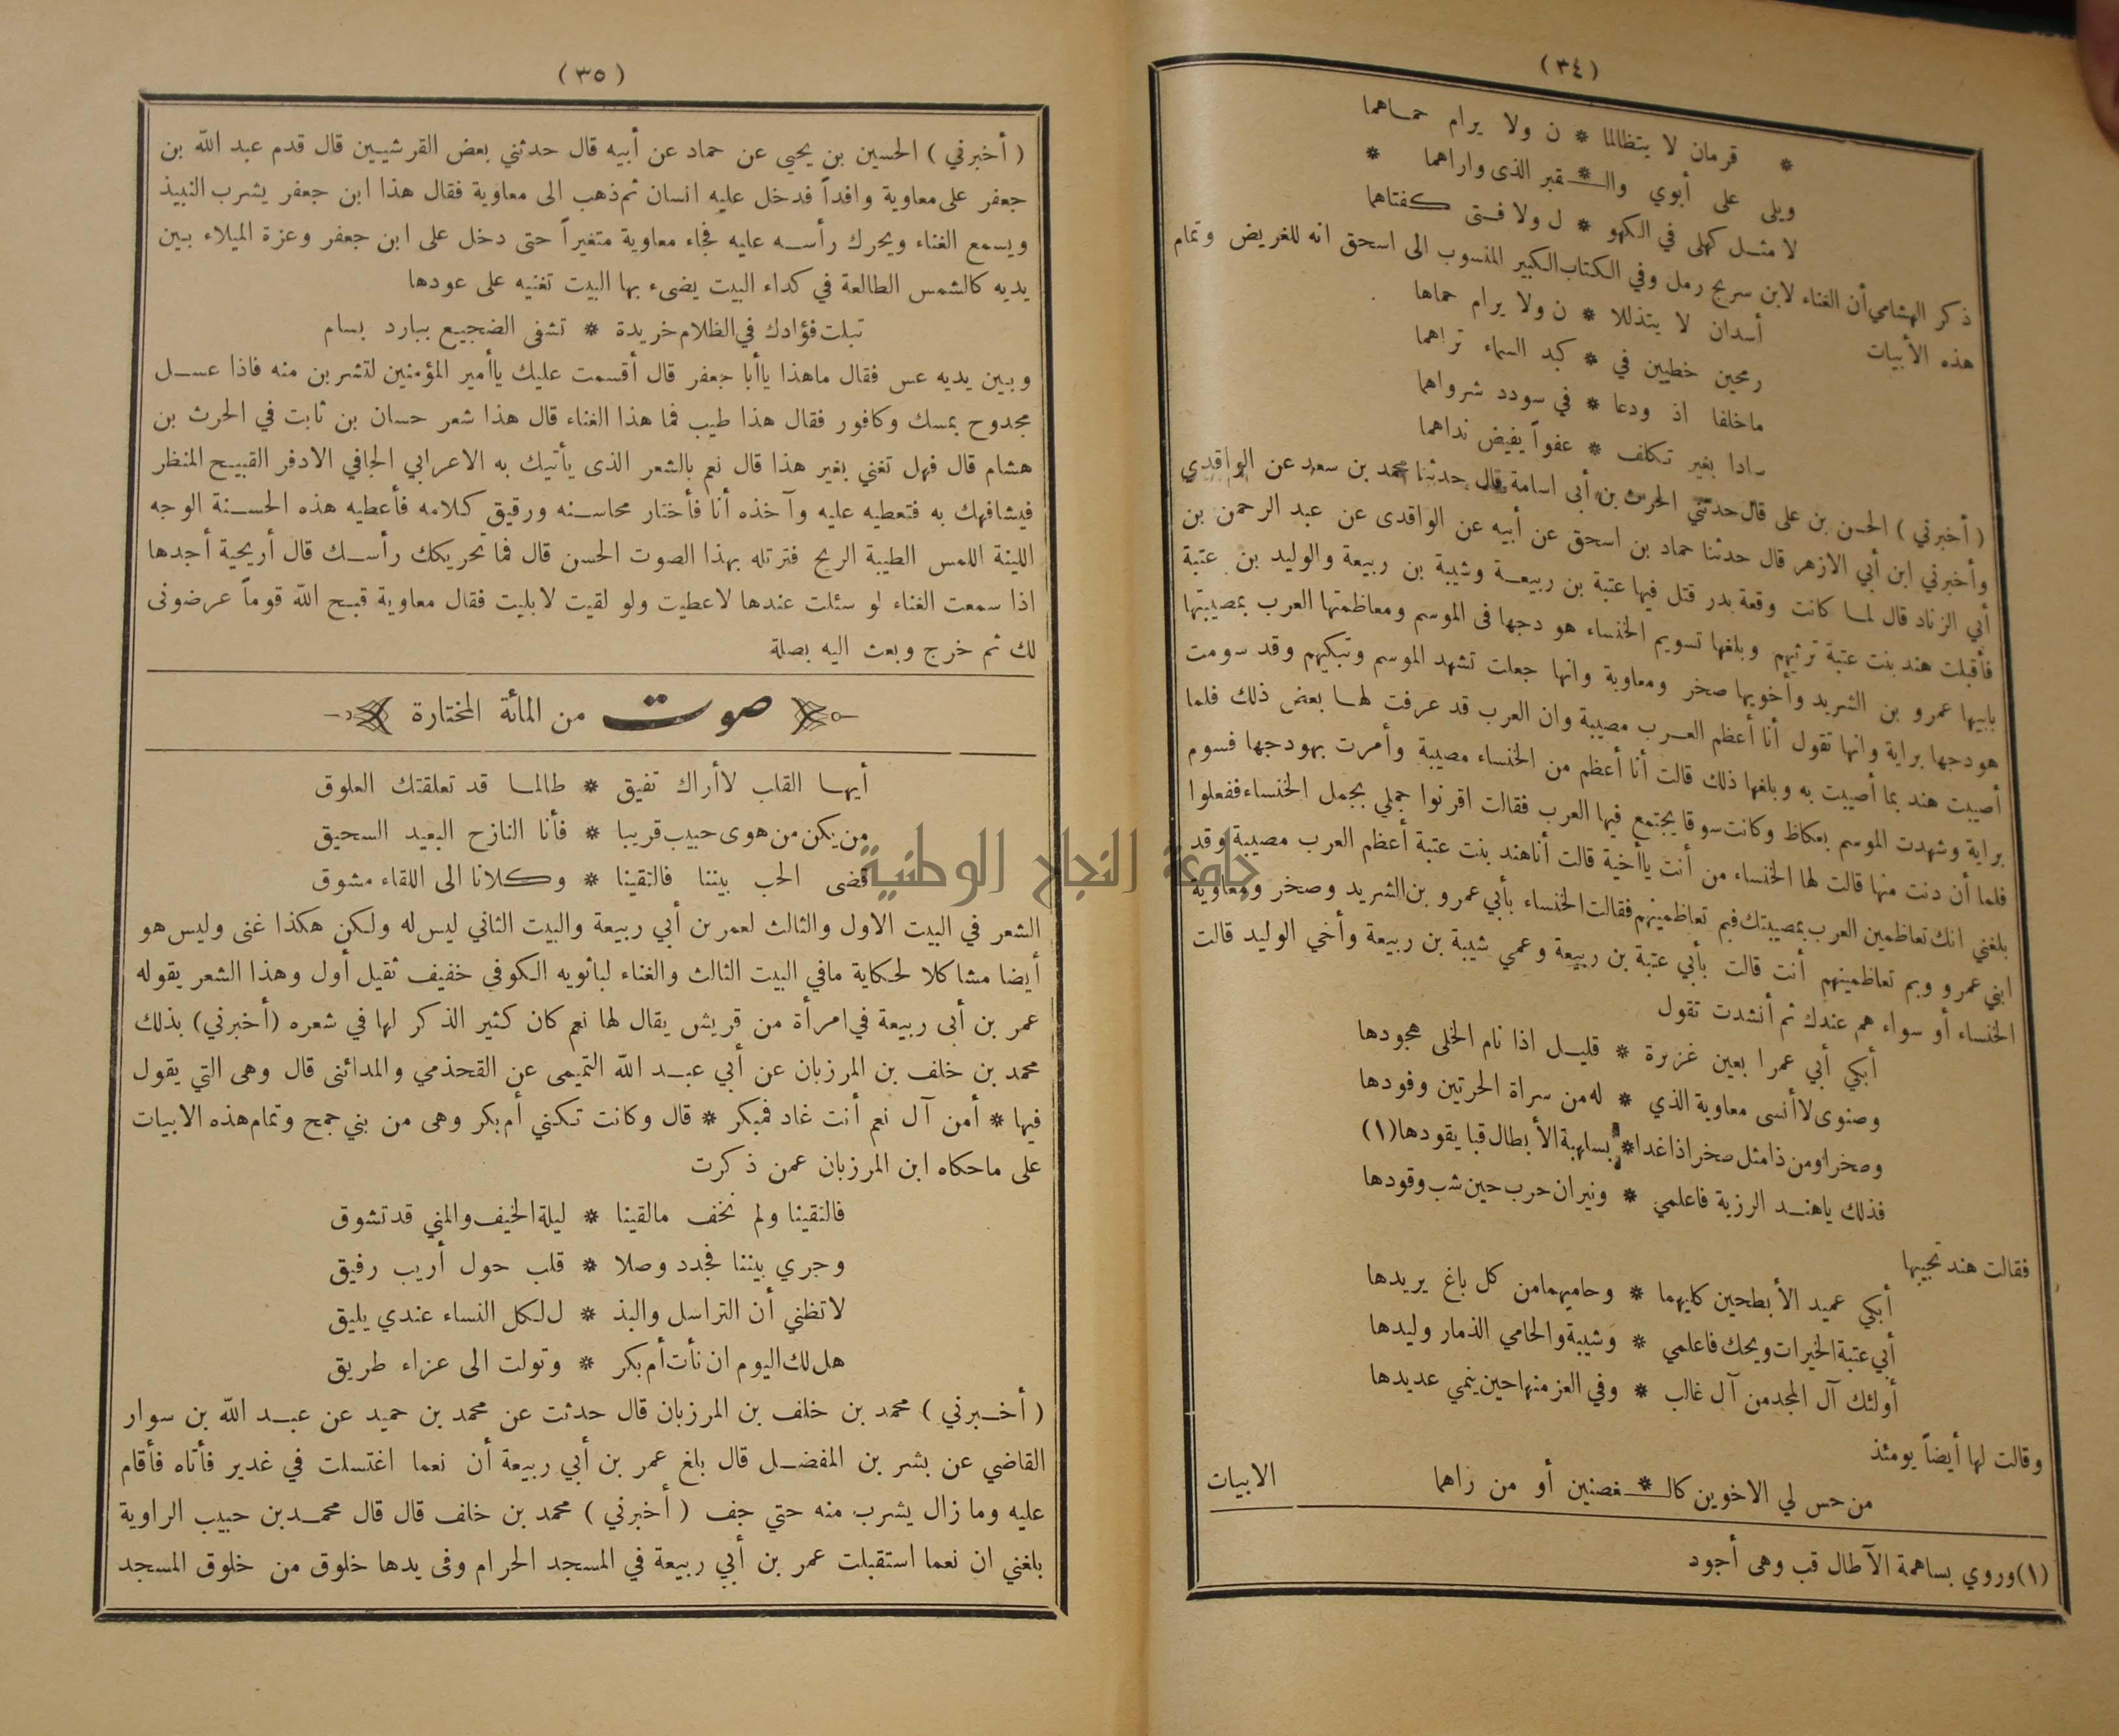 (٣٤)
* قرمان لا يتظالما * ن ولا يرام حماهما *
ويلى على أبوي والـ * ـقبر الذى واراهما
لا مثل كهلى في الكهو * ل ولا فتى كفتاهما
ذكر الهشامي أن الغناء لابن سريج رمل وفي الكتاب الكبير المنسوب الى اسحق انه للغريض وتمام
هذه الأبيات
أسدان لا يتذللا * ن ولا يرام حماها
رمحين خطيين في * كبد السماء تراهما
ماخلفا اذ ودعا * في سودد شرواهما
سادا بغير تكلف * عفواً يفيض نداهما
( أخبرني ) الحسن بن على قال حدثني الحرث بن أبى اسامة قال حدثنا محمد بن سعد عن الواقدي
وأخبرني ابن أبي الازهر قال حدثنا حماد بن اسحق عن أبيه عن الواقدى عن عبد الرحمن بن
أبي الزناد قال لما كانت وقعة بدر قتل فيها عتبة بن ربيعة وشيبة بن ربيعة والوليد بن عتبة
فأقبلت هند بنت عتبة ترثيهم وبلغها تسويم الخنساء هودجها فى الموسم ومعاظمتها العرب بمصيبتها
بابيها عمرو بن الشريد وأخويها صخر ومعاوية وانها جعلت تشهد الموسم وتبكيهم وقد سومت
هودجها براية وانها تقول أنا أعظم العرب مصيبة وان العرب قد عرفت لها بعض ذلك فلما
أصيبت هند بما أصيبت به وبلغها ذلك قالت أنا أعظم من الخنساء مصيبة وأمرت بهودجها فسوم
براية وشهدت الموسم بعكاظ وكانت سوقا يجتمع فيها العرب فقالت اقرنوا جملي بجمل الخنساء ففعلوا
فلما أن دنت منها قالت لها الخنساء من أنت ياأخية قالت أنا هند بنت عتبة أعظم العرب مصيبة وقد
بلغني انك تعاظمين العرب بمصيبتك فبم تعاظمينهم فقالت الخنساء بأبي عمرو بن الشريد وصخر ومعاوية
ابني عمرو وبم تعاظمينهم أنت قالت بأبي عتبة بن ربيعة وعمي شيبة بن ربيعة وأخي الوليد قالت
الخنساء أو سواء هم عندك ثم أنشدت تقول
أبكي أبي عمرا بعين غزيرة * قليل اذا نام الخلى هجودها
وصنوى لا أنسى معاوية الذي * له من سراة الحرتين وفودها
وصخرا ومن ذا مثل صخر اذا غدا * بسلهبة الأبطال قبا يقودها (١)
فذلك ياهند الرزية فاعلمي * ونيران حرب حين شب وقودها
فقالت هند تجيبها
أبكي عميد الأبطحين كليهما * وحاميهما من كل باغ يريدها
أبي عتبة الخيرات ويحك فاعلمي * وشيبة والحامي الذمار وليدها
أولئك آل المجد من آل غالب * وفي العز منها حين ينمي عديدها
وقالت لها أيضاً يومئذ
من حس لي الاخوين كالـ * ـغصنين أو من راهما الابيات
(١) وروي بساهمة الآطال قب وهى أجود
(٣٥)
( أخبرني ) الحسين بن يحيى عن حماد عن أبيه قال حدثني بعض القرشيين قال قدم عبد الله بن
جعفر على معاوية وافداً فدخل عليه انسان ثم ذهب الى معاوية فقال هذا ابن جعفر يشرب النبيذ
ويسمع الغناء ويحرك رأسه عليه فجاء معاوية متغيراً حتى دخل على ابن جعفر وعزة الميلاء بين
يديه كالشمس الطالعة في كداء البيت يضىء بها البيت تغنيه على عودها
تبلت فؤادك في الظلام خريدة * تشفى الضجيع ببارد بسام
وبين يديه عس فقال ماهذا ياأبا جعفر قال أقسمت عليك ياأمير المؤمنين لتشربن منه فاذا عسل
مجدوح بمسك وكافور فقال هذا طيب فما هذا الغناء قال هذا شعر حسان بن ثابت في الحرث بن
هشام قال فهل تغني بغير هذا قال نعم بالشعر الذى يأتيك به الاعرابي الجافي الادفر القبيح المنظر
فيشافهك به فتعطيه عليه وآخذه أنا فأختار محاسنه ورقيق كلامه فأعطيه هذه الحسنة الوجه
اللينة اللمس الطيبة الريح فترتله بهذا الصوت الحسن قال فما تحريكك رأسك قال أريحية أجدها
اذا سمعت الغناء لو سئلت عندها لاعطيت ولو لقيت لابليت فقال معاوية قبح الله قوماً عرضونى
لك ثم خرج وبعث اليه بصلة
صوت من المائة المختارة
أيها القلب لا أراك تفيق * طالما قد تعلقتك العلوق
من يكن من هوى حبيب قريبا * فأنا النازح البعيد السحيق
قضى الحب بيننا فالتقينا * وكلانا الى اللقاء مشوق
جامعة النجاح الوطنية
الشعر في البيت الاول والثالث لعمر بن أبي ربيعة والبيت الثاني ليس له ولكن هكذا غنى وليس هو
أيضا مشاكلا لحكاية مافي البيت الثالث والغناء لبانويه الكوفى خفيف ثقيل أول وهذا الشعر يقوله
عمر بن أبى ربيعة في امرأة من قريش يقال لها نعم كان كثير الذكر لها في شعره (أخبرني) بذلك
محمد بن خلف بن المرزبان عن أبي عبد الله التميمى عن القحذمي والمدائنى قال وهى التي يقول
فيها * أمن آل نعم أنت غاد فمبكر * قال وكانت تكنى أم بكر وهى من بني جمح وتمام هذه الابيات
على ماحكاه ابن المرزبان عمن ذكرت
فالتقينا ولم نخف مالقينا * ليلة الخيف والمني قد تشوق
وجري بيننا فجدد وصلا * قلب حول أريب رفيق
لا تظني أن التراسل والبذ * ل لكل النساء عندي يليق
هل لك اليوم ان نأت أم بكر * وتولت الى عزاء طريق
( أخبرني ) محمد بن خلف بن المرزبان قال حدثت عن محمد بن حميد عن عبد الله بن سوار
القاضي عن بشر بن المفضل قال بلغ عمر بن أبي ربيعة أن نعما اغتسلت في غدير فأتاه فأقام
عليه وما زال يشرب منه حتي جف ( أخبرني ) محمد بن خلف قال قال محمد بن حبيب الراوية
بلغني ان نعما استقبلت عمر بن أبي ربيعة في المسجد الحرام وفى يدها خلوق من خلوق المسجد